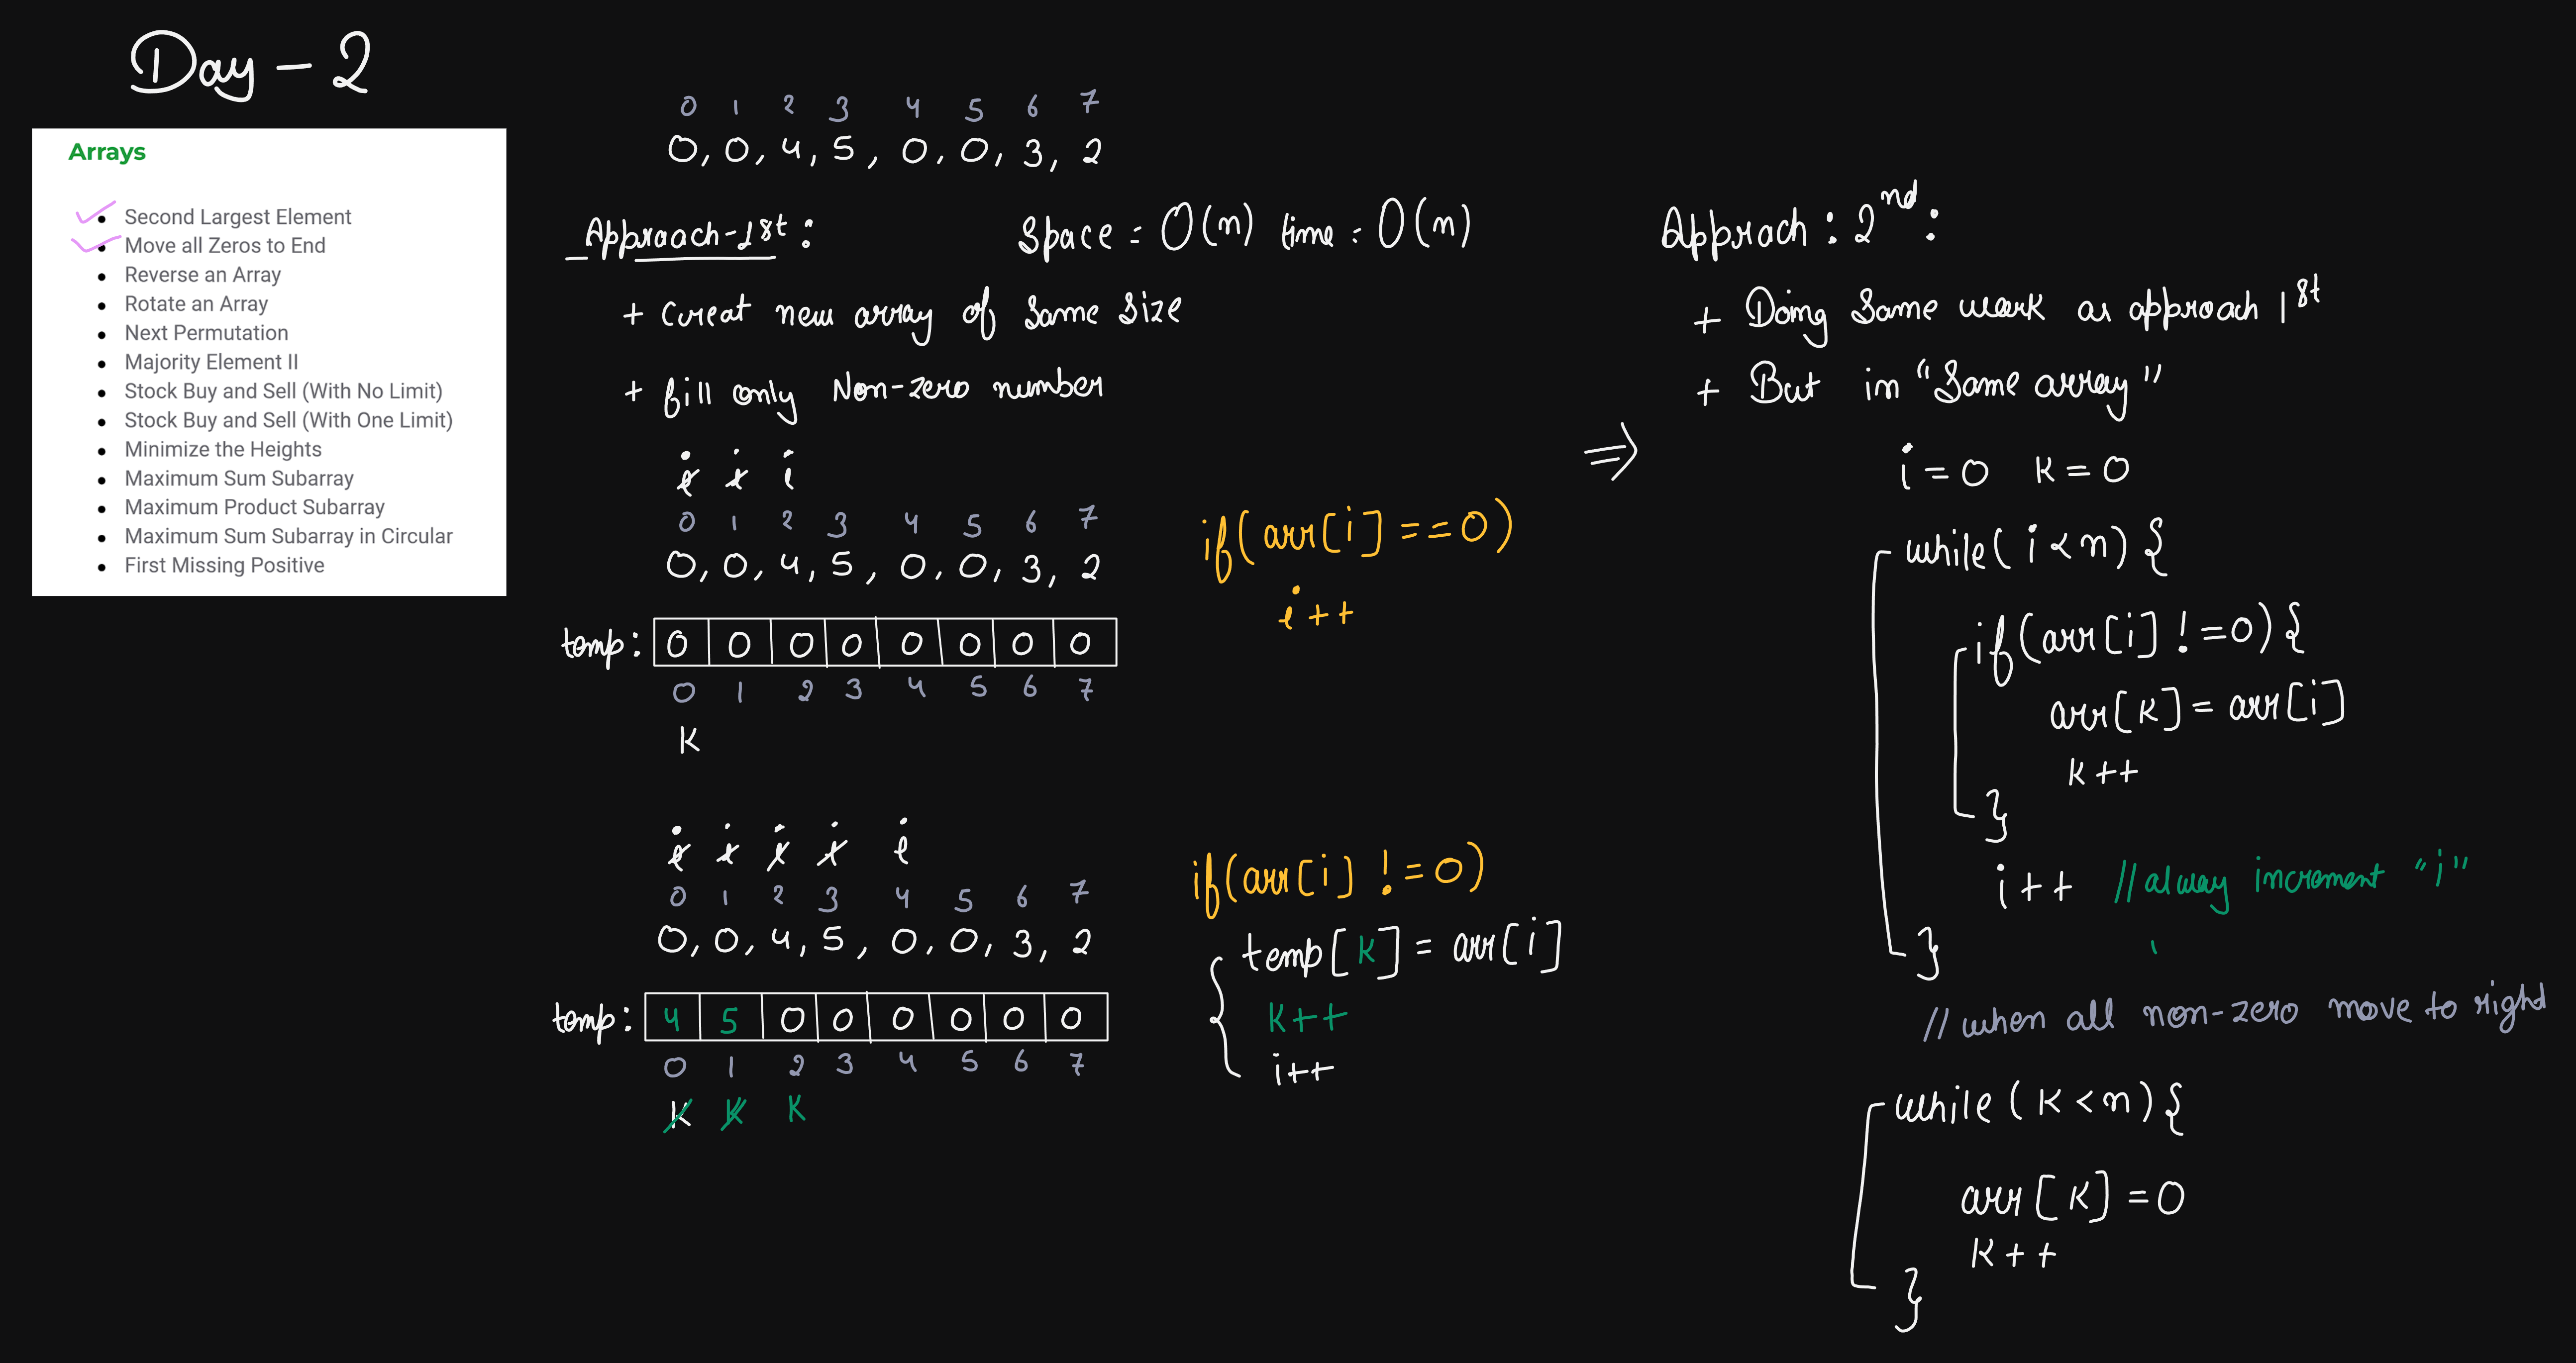 Day - 2
Arrays
Second Largest Element
Move all Zeros to End
Reverse an Array
Rotate an Array
Next Permutation
Majority Element II
Stock Buy and Sell (With No Limit)
Stock Buy and Sell (With One Limit)
Minimize the Heights
Maximum Sum Subarray
Maximum Product Subarray
Maximum Sum Subarray in Circular
First Missing Positive
0 1 2 3 4 5 6 7
0, 0, 4, 5, 0, 0, 3, 2
Appraach-1st: Space = O(n) time = O(n)
+ creat new array of same size
+ fill only Non-zero number
i i i
0 1 2 3 4 5 6 7
0, 0, 4, 5, 0, 0, 3, 2
temp: 0 0 0 0 0 0 0 0
0 1 2 3 4 5 6 7
K
if(arr[i] == 0)
i++
i i i i i
0 1 2 3 4 5 6 7
0, 0, 4, 5, 0, 0, 3, 2
temp: 4 5 0 0 0 0 0 0
0 1 2 3 4 5 6 7
K K K
if(arr[i] != 0)
{ temp[K] = arr[i]
K++
i++
⇒
Approach: 2nd:
+ Doing Same work as approach 1st
+ But in "Same array"
i = 0 K = 0
while(i < n) {
if(arr[i] != 0) {
arr[K] = arr[i]
K++
}
i++ //alway increment "i"
}
// when all non-zero move to right
while (K < n) {
arr[K] = 0
K++
}